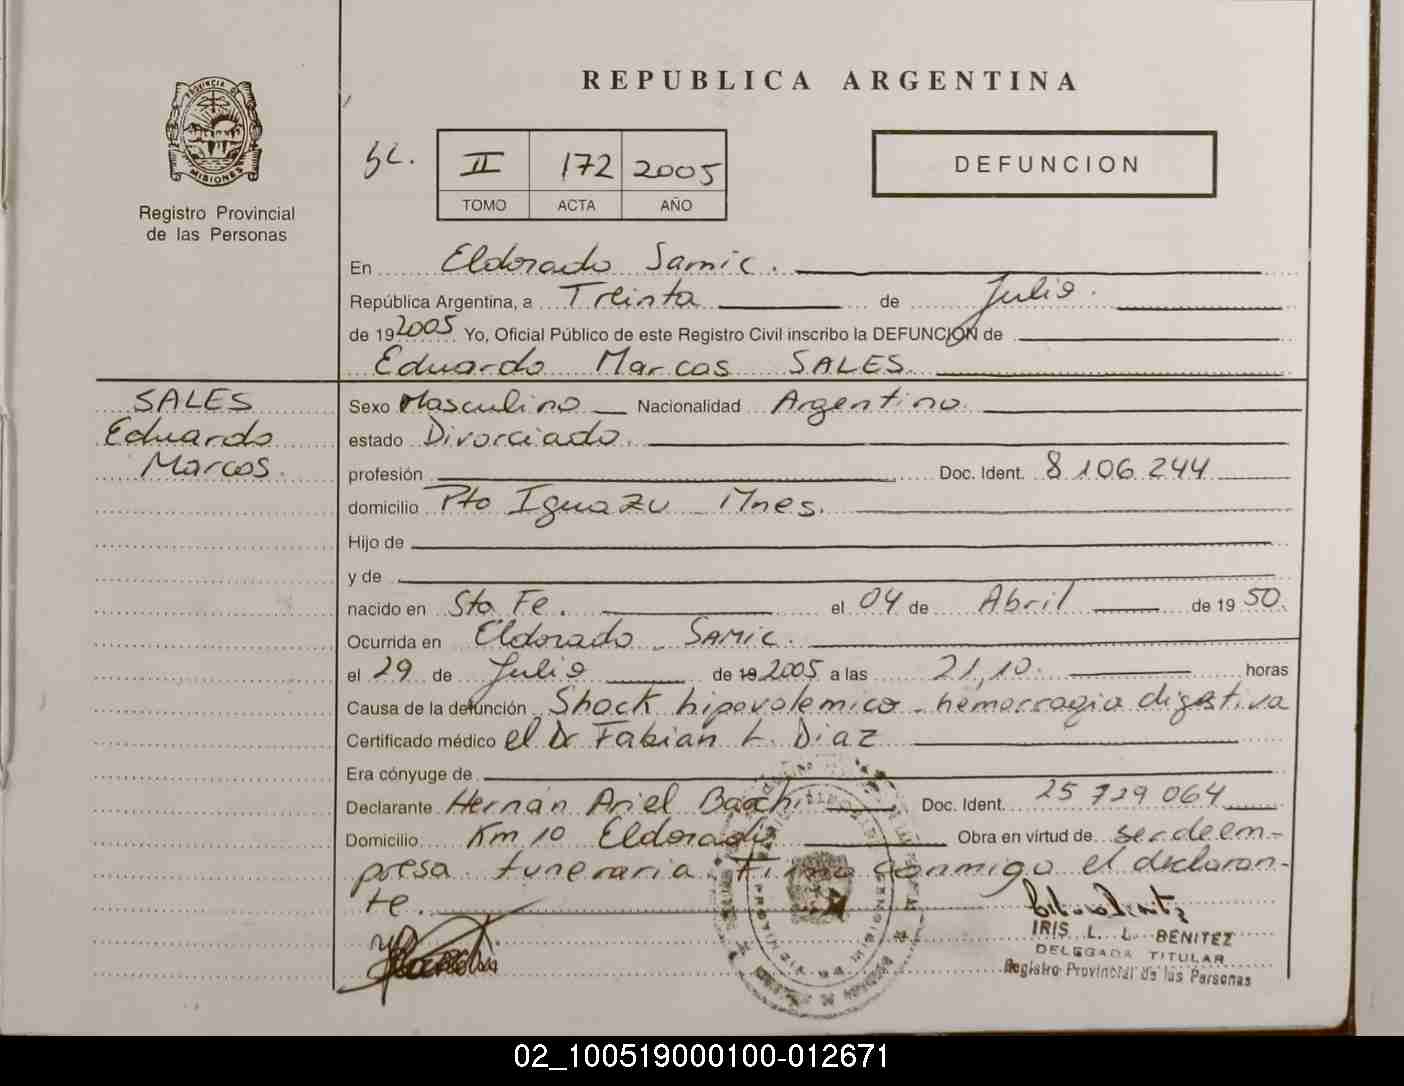 REPUBLICA ARGENTINA
PROVINCIA DE
MISIONES
Registro Provincial
de las Personas
II 172 2005
TOMO ACTA AÑO
DEFUNCION
En Eldorado Samic.
República Argentina, a Treinta de Julio.
de 19 2005 Yo, Oficial Público de este Registro Civil inscribo la DEFUNCION de
Eduardo Marcos SALES
SALES
Eduardo
Marcos.
Sexo Masculino Nacionalidad Argentino
estado Divorciado.
profesión Doc. Ident. 8.106.244
domicilio Pto Iguazu Mnes.
Hijo de
y de
nacido en Sta Fe. el 04 de Abril de 19 50.
Ocurrida en Eldorado - SAMIC.
el 29 de Julio de 19 2005 a las 21,10. horas
Causa de la defunción Shock hipovolemico - hemorragia digestiva
Certificado médico el Dr Fabian L. Diaz
Era cónyuge de
Declarante Hernán Ariel Doc. Ident. 25 729 064
Domicilio Km 10 Eldorado Obra en virtud de ser de em-
presa funeraria. Firma conmigo el declaran-
te.
IRIS L. L. BENITEZ
DELEGADA TITULAR
Registro Provincial de las Personas
02_100519000100-012671